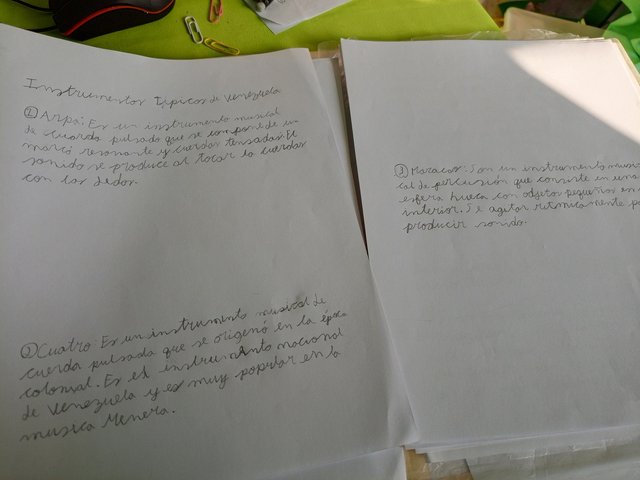 Instrumentos Tipicos de Venezuela
① Arpa: Es un instrumento musical
de cuerda pulsado que se compone de un
marco resonante y cuerdas tensadas. El
sonido se produce al tocar la cuerdas
con los dedos.
② Cuatro: Es un instrumento musical de
cuerda pulsada que se origenó en la época
colonial. Es el instrumento nacional
de Venezuela y es muy popular en la
musica llenera.
③ Maracas: Son un instrumento musi
cal de percusión que consiste en una
esfera hueca con objetos pequeños en
interior. Se agitan ritmicamente pa
producir sonido.